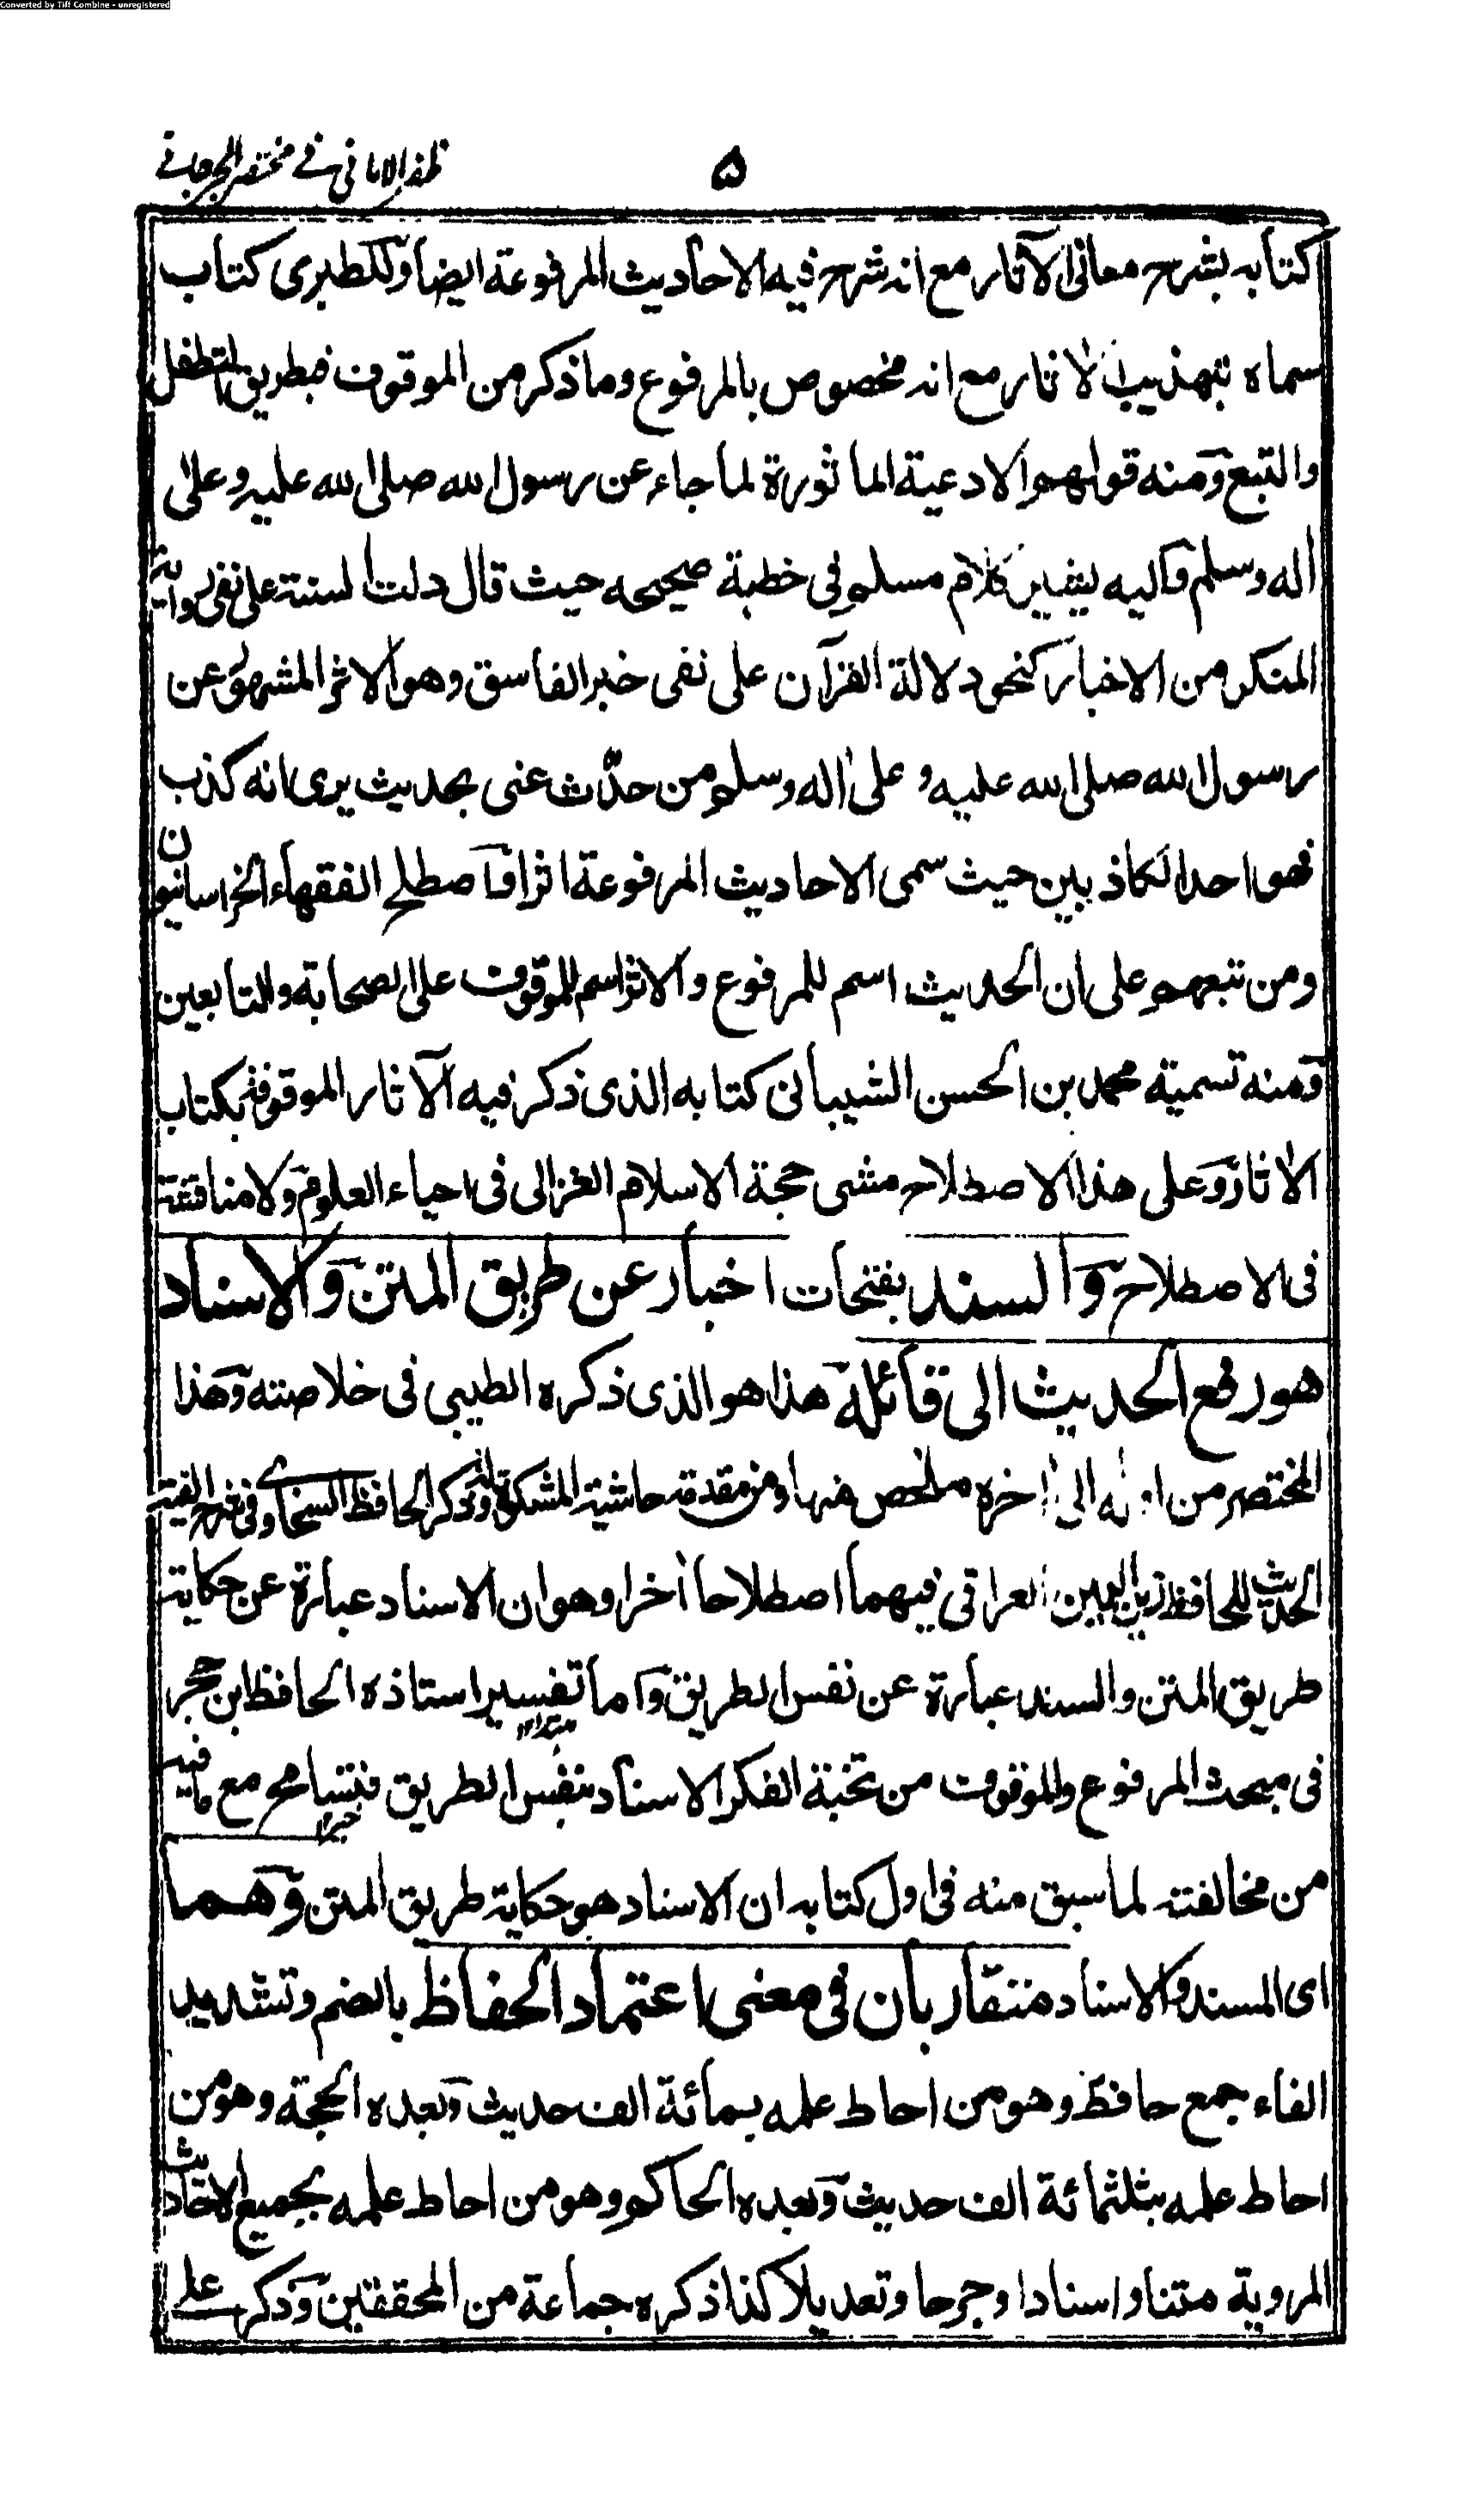 Converted by Tiff Combine - unregistered
ظفر الامانی فے مختصر الجرجانے
۵
کتابه بشرح معانی الآثار مع انه شرح فیه الاحادیث المرفوعة ایضا وللطبری کتاب
سماه بتهذیب الاثار مع انه مخصوص بالمرفوع وما ذکر من الموقوف فبطریق التطفل
والتبع ومنه قولهم الادعیة الماثورة لما جاء عن رسول الله صلی الله علیه وعلی
اله وسلم والیه یشیر کلام مسلم فی خطبة صحیحه حیث قال دلت السنة علی نفی روایة
المنکر من الاخبار کنحو دلالة القرآن علی نفی خبر الفاسق وهو الاثر المشهور عن
رسول الله صلی الله علیه وعلی اله وسلم من حدّث عنی بحدیث یری انه کذب
فهو احد الکاذبین حیث سمی الاحادیث المرفوعة اثرا واصطلح الفقهاء الخراسانیون
ومن تبعهم علی ان الحدیث اسم للمرفوع والاثر اسم للموقوف علی الصحابة والتابعین
ومنه تسمیة محمد بن الحسن الشیبانی کتابه الذی ذکر فیه الآثار الموقوفة بکتاب
الاثار وعلی هذا الاصطلاح مشی حجة الاسلام الغزالی فی احیاء العلوم ولا مناقشة
فی الاصطلاح والسند بفتحات اخبار عن طریق المتن والاسناد
هو رفع الحدیث الی قائله هذا هو الذی ذکره الطیبی فی خلاصته وهذا
المختصر من اوله الی اخره ملخص منها ومن مقدمة حاشیة المشکوة له وذکر الحافظ السخاوی فی شرح الفیة
الحدیث للحافظ زین الدین العراقی فیهما اصطلاحا أخر وهو ان الاسناد عبارة عن حکایة
طریق المتن والسند عبارة عن نفس الطریق واما تفسیر استاذه الحافظ ابن حجر
مبتدا
فی مبحث المرفوع والموقوف من نخبة الفکر الاسناد بنفس الطریق فتسامح مع ما فیه
خبر
من مخالفته لما سبق منه فی اول کتابه ان الاسناد هو حکایة طریق المتن وهما
ای السند والاسناد متقاربان فی معنی اعتماد الحفاظ بالضم وتشدید
الفاء جمع حافظ وهو من احاط علمه بمائة الف حدیث وبعده الحجة وهو من
احاط علمه بثلثمائة الف حدیث وبعده الحاکم وهو من احاط علمه بجمیع الاحادیث
المرویة متنا واسنادا وجرحا وتعدیلا کذا ذکره جماعة من المحققین وذکر علی